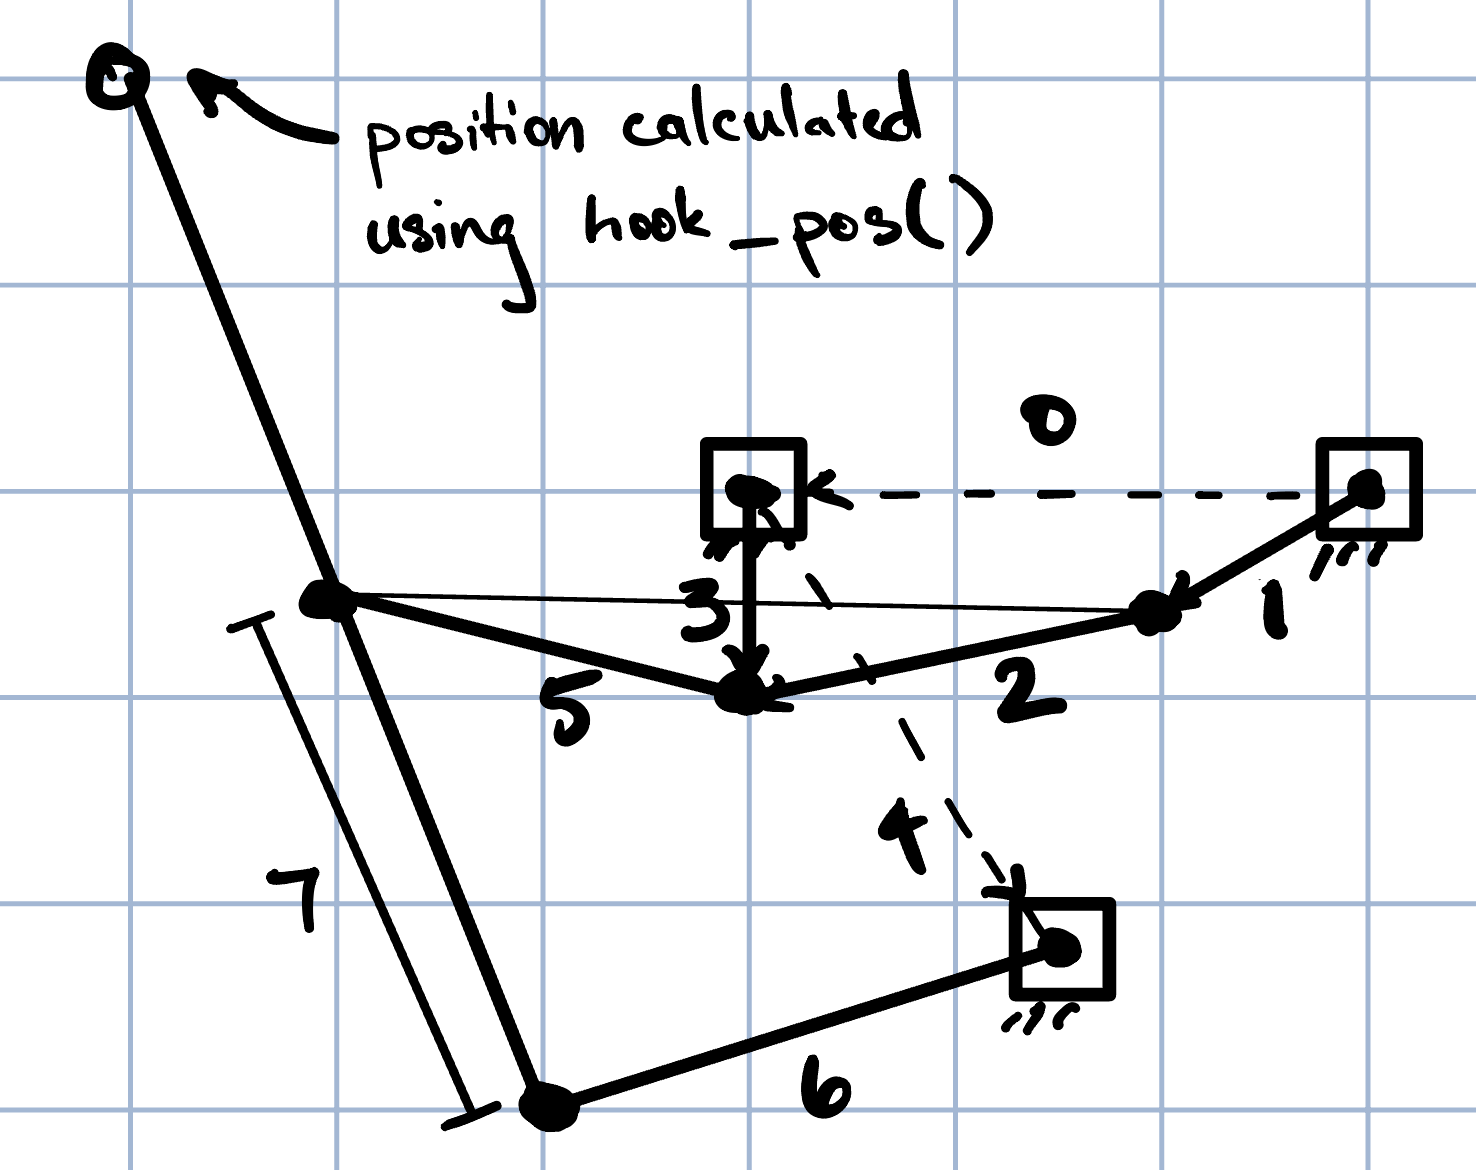 position calculated
using hook_pos()
0
3
1
5
2
4
7
6